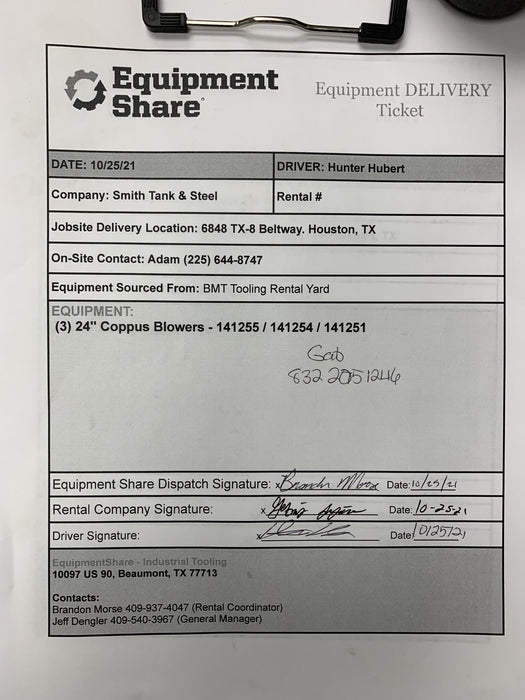 Equipment
Share
Equipment DELIVERY
Ticket
DATE: 10/25/21
DRIVER: Hunter Hubert
Company: Smith Tank & Steel
Rental #
Jobsite Delivery Location: 6848 TX-8 Beltway. Houston, TX
On-Site Contact: Adam (225) 644-8747
Equipment Sourced From: BMT Tooling Rental Yard
EQUIPMENT:
(3) 24" Coppus Blowers - 141255 / 141254 / 141251
Gab
832 2051246
Equipment Share Dispatch Signature: x Brandon Morse Date: 10/25/21
Rental Company Signature: x Date: 10-25-21
Driver Signature: x Date: 10/25/21
EquipmentShare - Industrial Tooling
10097 US 90, Beaumont, TX 77713
Contacts:
Brandon Morse 409-937-4047 (Rental Coordinator)
Jeff Dengler 409-540-3967 (General Manager)